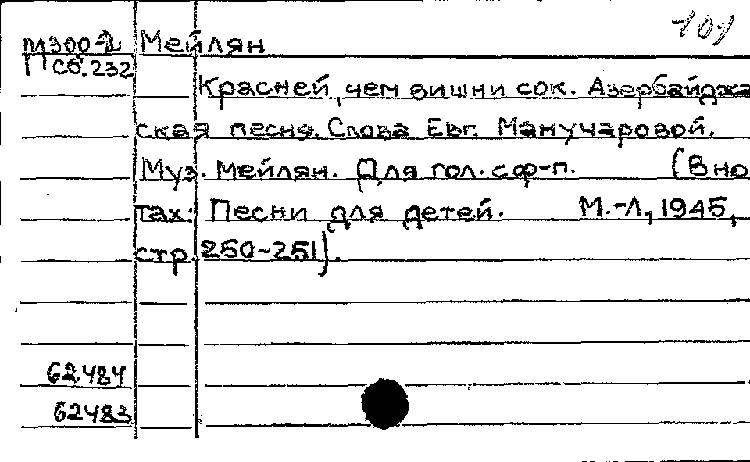 101
М300-2 Мейлян
П сб.232
Красней, чем вишни сок. Азербайджа
ская песня. Слова Евг. Манучаровой.
Муз. Мейлян. Для гол. с ф-п. (В но
тах: Песни для детей. М.-Л, 1945,
стр. 250-251).
62484
62483